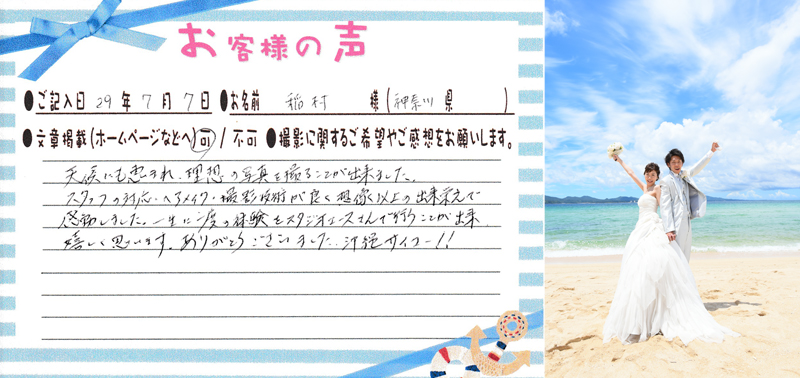 お客様の声
●ご記入日 29年 7月 7日 ●お名前 稲村 様(神奈川県 )
●文章掲載(ホームページなどへ)可/不可 ●撮影に関するご希望やご感想をお願いします。
天候にも恵まれ、理想の写真を撮ることが出来ました。
スタッフの対応・ヘアメイク・撮影技術が良く想像以上の出来栄えで
感動しました。一生に一度の体験をスタジオエースさんで行うことが出来
嬉しく思います。ありがとうございました。沖縄サイコー!!